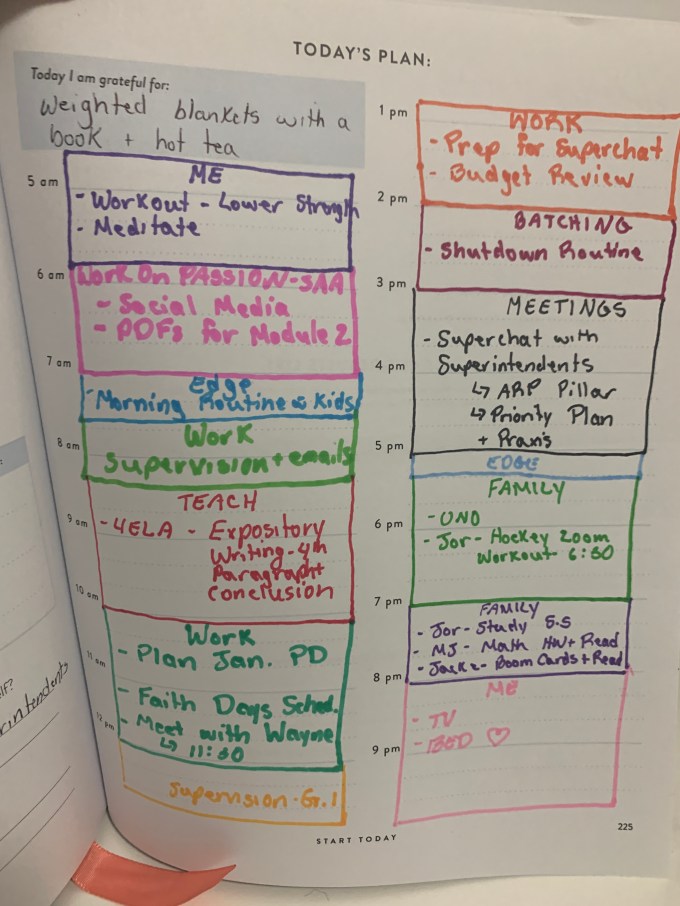 TODAY'S PLAN:
Today I am grateful for:
Weighted blankets with a
book + hot tea
5 am
ME
- Workout - Lower Strength
- Meditate
6 am
Work On PASSION-SAA
- Social Media
- PDFs for Module 2
7 am
Edge
- Morning Routine & Kids
8 am
Work
Supervision + emails
TEACH
9 am
- 4ELA - Expository
Writing - 4th
Paragraph +
Conclusion
10 am
Work
11 am
- Plan Jan. PD
- Faith Days Sched.
12 pm
- Meet with Wayne
↳ 11:30
Supervision - Gr. 1
1 pm
WORK
- Prep for Superchat
- Budget Review
2 pm
BATCHING
- Shutdown Routine
3 pm
MEETINGS
- Superchat with
Superintendents
4 pm
↳ ARP Pillar
↳ Priority Plan
+ Praxis
5 pm
EDGE
FAMILY
6 pm
- UNO
- Jor - Hockey Zoom
Workout 6:30
7 pm
FAMILY
- Jor - Study S.S
- MJ - Math HW + Read
- Jack - Boom Cards + Read
8 pm
ME
- TV
9 pm
- BED ♡
START TODAY
225
rintendents